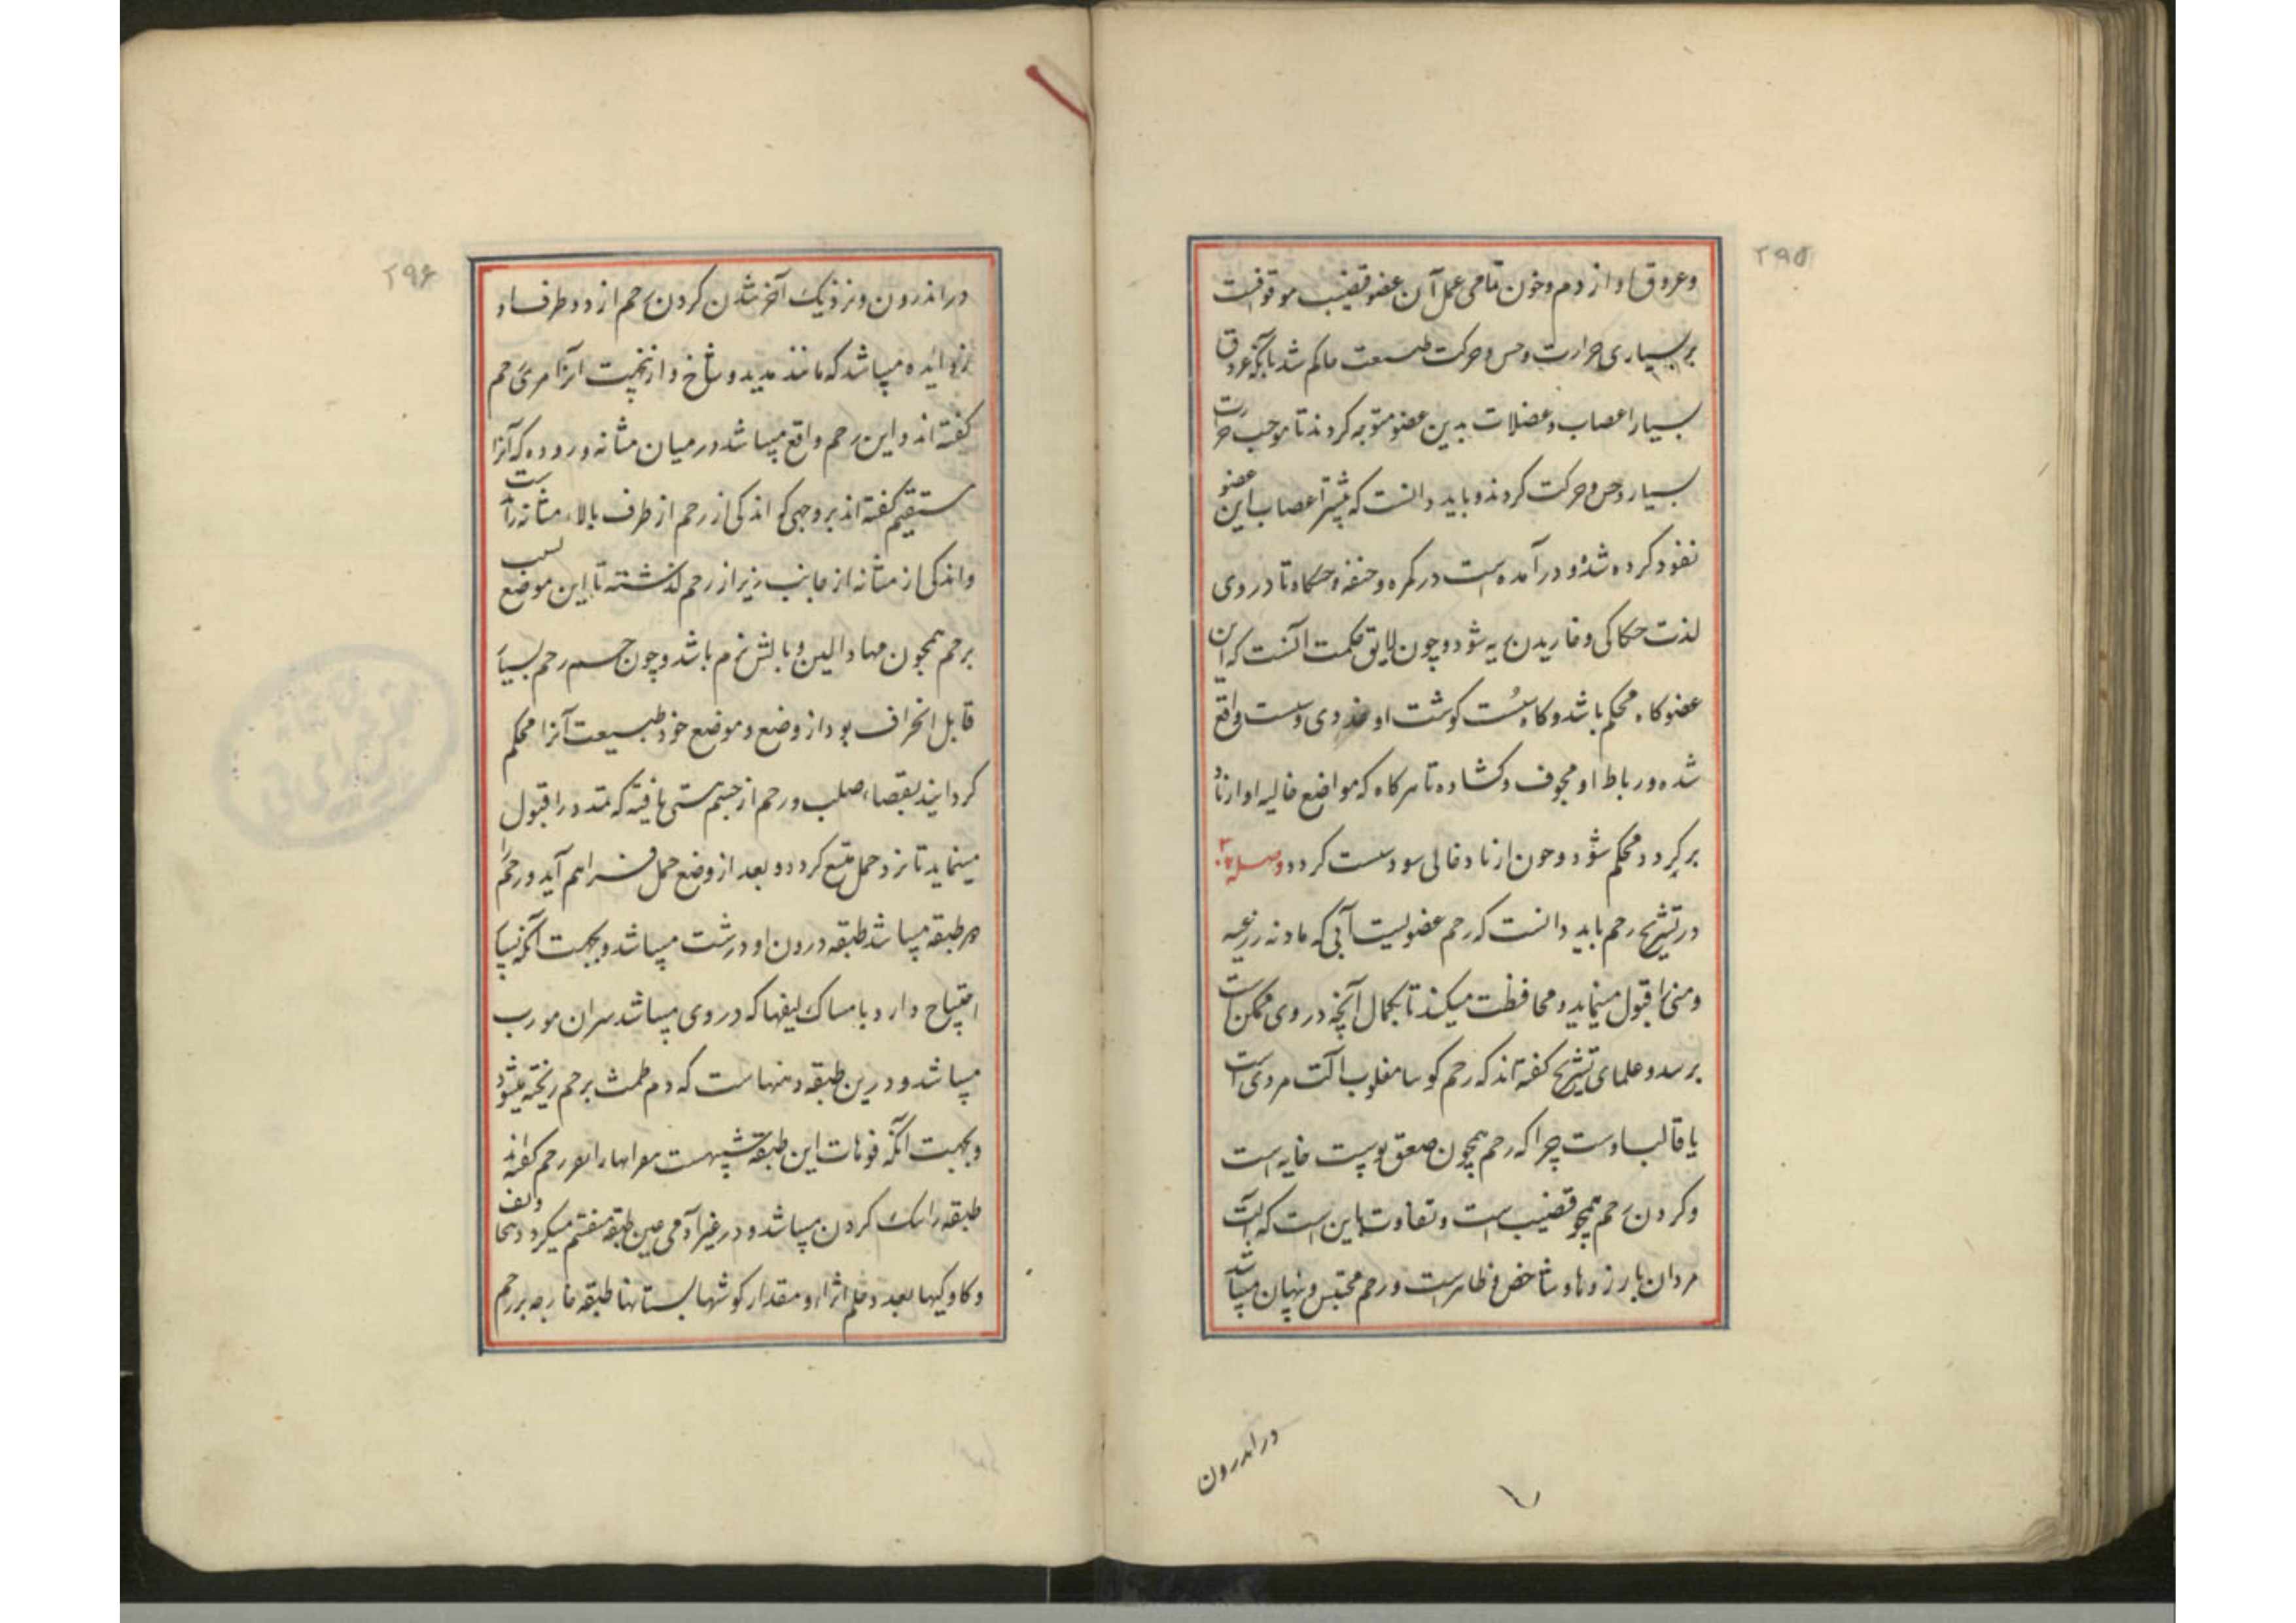 ۲۹۵
وعروق او از دم و خون تمامی عمل آن عضو قضیب موقوفست
بر بسیاری حرارت و حس و حرکت طبیعت حاکم شد بآنکه عروق
بسیار اعصاب و عضلات بدین عضو متوجه کردند تا موجب حرارت
بسیار و حس و حرکت کردند و باید دانست که بیشتر اعصاب این عضو
نفوذ کرده شده و در آمده است در کمره و حنفه و حکاه تا در وی
لذت حکاکی و خاریدن شود و چون لایق حکمت آنست که این
عضو کاه محکم باشد و کاه سست کوشت او غددی و سست واقع
شده و رباط او مجوف و کشاده تا هرکاه که مواضع خالیه او از باد
بر کردد محکم شود و چون از باد خالی شود سست کردد وصل
در تشریح رحم باید دانست که رحم عضویست آلی که ماده زرعیه
و منی را قبول مینماید و محافظت میکند تا بکمال آنچه در وی ممکن است
برسد و علمای تشریح کفته اند که رحم کویا مقلوب آلت مردی است
یا قالب اوست چرا که رحم همچون صفق پوست خایه است
و کردن رحم همچو قضیب است و تفاوت باین است که آلت
مردان بارز و شاخص و ظاهر است و رحم محتبس و پنهان میباشد
در اندرون
۲۹۶
در اندرون و نزدیک آخر شدن کردن رحم از دو طرف او
زوایده میباشد که مانند مدید و شاخ و از نجهت آنرا مری رحم
کفته اند و این رحم واقع میباشد در میان مثانه و روده که آنرا
مستقیم کفته اند بروجهی که اندکی از رحم از طرف بالا مثانه راست
و اندکی از مثانه از جانب زیر از رحم گذشته تا این موضع
برحم همچون مهاد و الین و بالش نرم باشد و چون جسم رحم بسیار
قابل انحراف بود از وضع و موضع خود طبیعت آنرا محکم
کردانید بفضاء صلب و رحم از جسم سستی یافته که تمدد را قبول
مینماید تا نزد حمل متسع کردد و بعد از وضع حمل فراهم آید و رحم را
دو طبقه میباشد طبقه درون او درشت میباشد و بجهت آنکه
احتیاج دارد بامساک لیفها که در وی میباشد سران مورب
میباشد و درین طبقه دهنهاست که دم طمث برحم ریخته میشود
و بجهت آنکه فوهات این طبقه رحم کفته اند
طبقه را کردن میباشد و در غیر آدمی طبقه منقسم میکردد
بعدد و مقدار کوشهای پستانها طبقه خارجه بر رحم